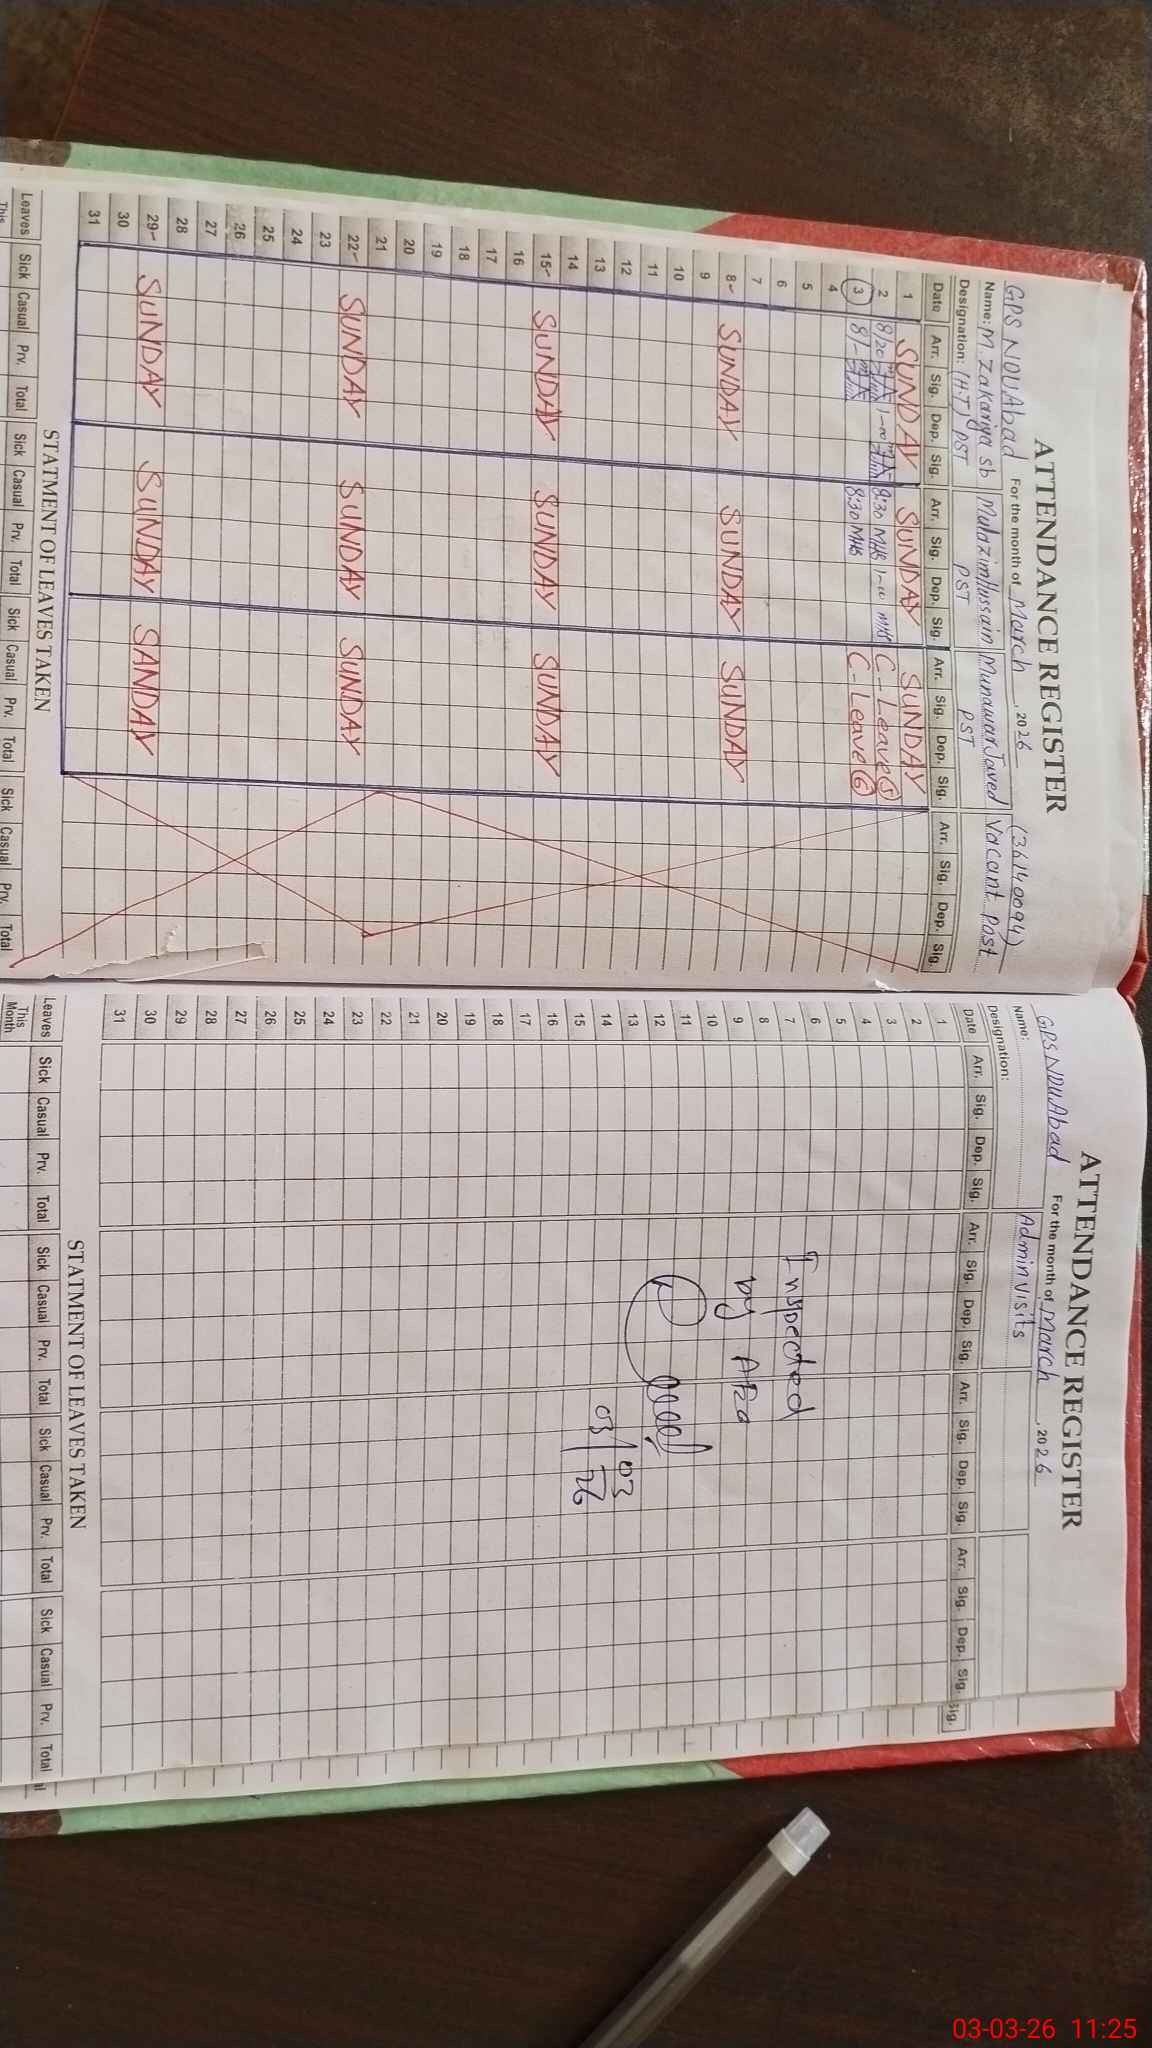 ATTENDANCE REGISTER
GPS NOUAbad For the month of March, 2026 (36140094)
Name: M. Zakariya sb Mulazim Hussain Munawar Javed Vacant Post
Designation: (H.T) PST PST PST
Date Arr. Sig. Dep. Sig. Arr. Sig. Dep. Sig. Arr. Sig. Dep. Sig. Arr. Sig. Dep. Sig.
1 SUNDAY SUNDAY SUNDAY
2 8/20 1-00 8:30 MHB 1-00 MHB C-Leave 5
3 8/- 8:30 MHB C-Leave 6
4
5
6
7
8- SUNDAY SUNDAY SUNDAY
9
10
11
12
13
14
15- SUNDAY SUNDAY SUNDAY
16
17
18
19
20
21
22- SUNDAY SUNDAY SUNDAY
23
24
25
26
27
28
29- SUNDAY SUNDAY SANDAY
30
31
STATMENT OF LEAVES TAKEN
Leaves Sick Casual Prv. Total Sick Casual Prv. Total Sick Casual Prv. Total Sick Casual Prv. Total
This
ATTENDANCE REGISTER
GPS NOUAbad For the month of March, 2026
Name: Admin visits
Designation:
Date Arr. Sig. Dep. Sig. Arr. Sig. Dep. Sig. Arr. Sig. Dep. Sig. Arr. Sig. Dep. Sig. Sig.
1
2
3
4
5
6 Inspected
7
8
9 by AEO
10
11
12
13 03
14 03/26
15
16
17
18
19
20
21
22
23
24
25
26
27
28
29
30
31
STATMENT OF LEAVES TAKEN
Leaves Sick Casual Prv. Total Sick Casual Prv. Total Sick Casual Prv. Total Sick Casual Prv. Total
This
Month
03-03-26 11:25